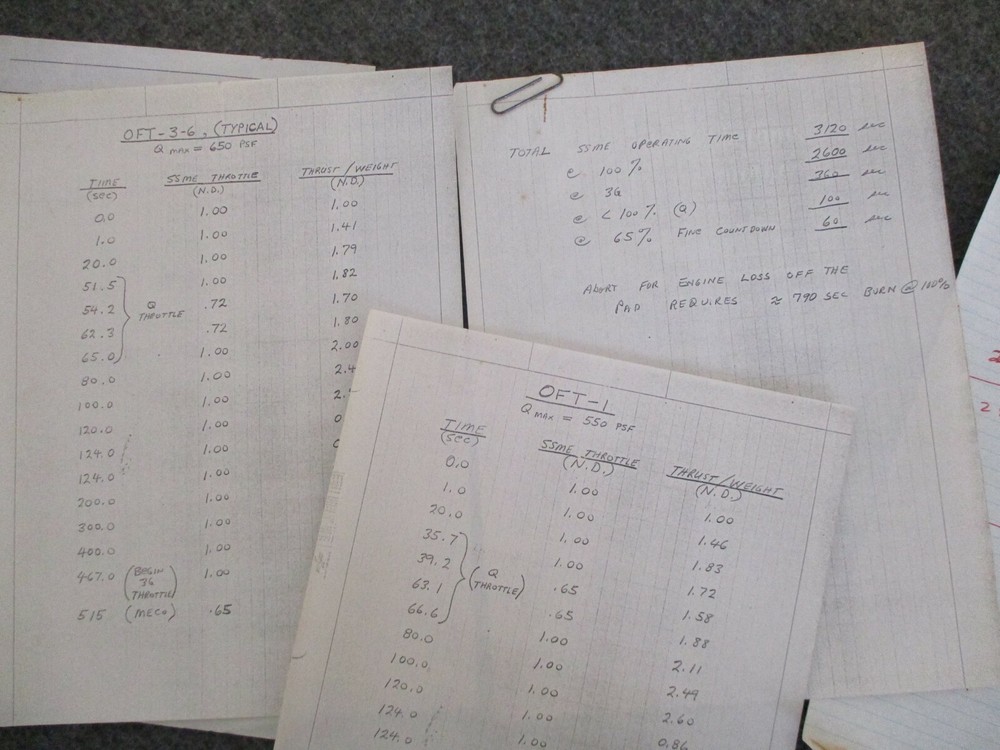 OFT-3-6, (TYPICAL)
Q MAX = 650 PSF
TIME SSME THROTTLE THRUST/WEIGHT
(SEC) (N.D.) (N.D.)
0.0 1.00 1.00
1.0 1.00 1.41
20.0 1.00 1.79
51.5 1.00 1.82
54.2 Q .72 1.70
62.3 THROTTLE .72 1.80
65.0 1.00 2.00
80.0 1.00 2.4
100.0 1.00
120.0 1.00
124.0 1.00
124.0 1.00
200.0 1.00
300.0 1.00
400.0 1.00
467.0 (BEGIN 3G THROTTLE) 1.00
515 (MECO) .65
TOTAL SSME OPERATING TIME 3120 sec
@ 100% 2600 sec
@ 3G 360 sec
@ < 100% (Q) 100 sec
@ 65% FINE COUNTDOWN 60 sec
ABORT FOR ENGINE LOSS OFF THE
PAD REQUIRES ≈ 790 SEC BURN @ 100%
OFT-1
Q MAX = 550 PSF
TIME SSME THROTTLE THRUST/WEIGHT
(SEC) (N.D.) (N.D.)
0.0 1.00 1.00
1.0 1.00 1.46
20.0 1.00 1.83
35.7 .65 1.72
39.2 Q .65 1.58
63.1 (THROTTLE) 1.00 1.88
66.6 1.00 2.11
80.0 1.00 2.49
100.0 1.00 2.60
120.0 1.00 0.86
124.0
124.0
2
2